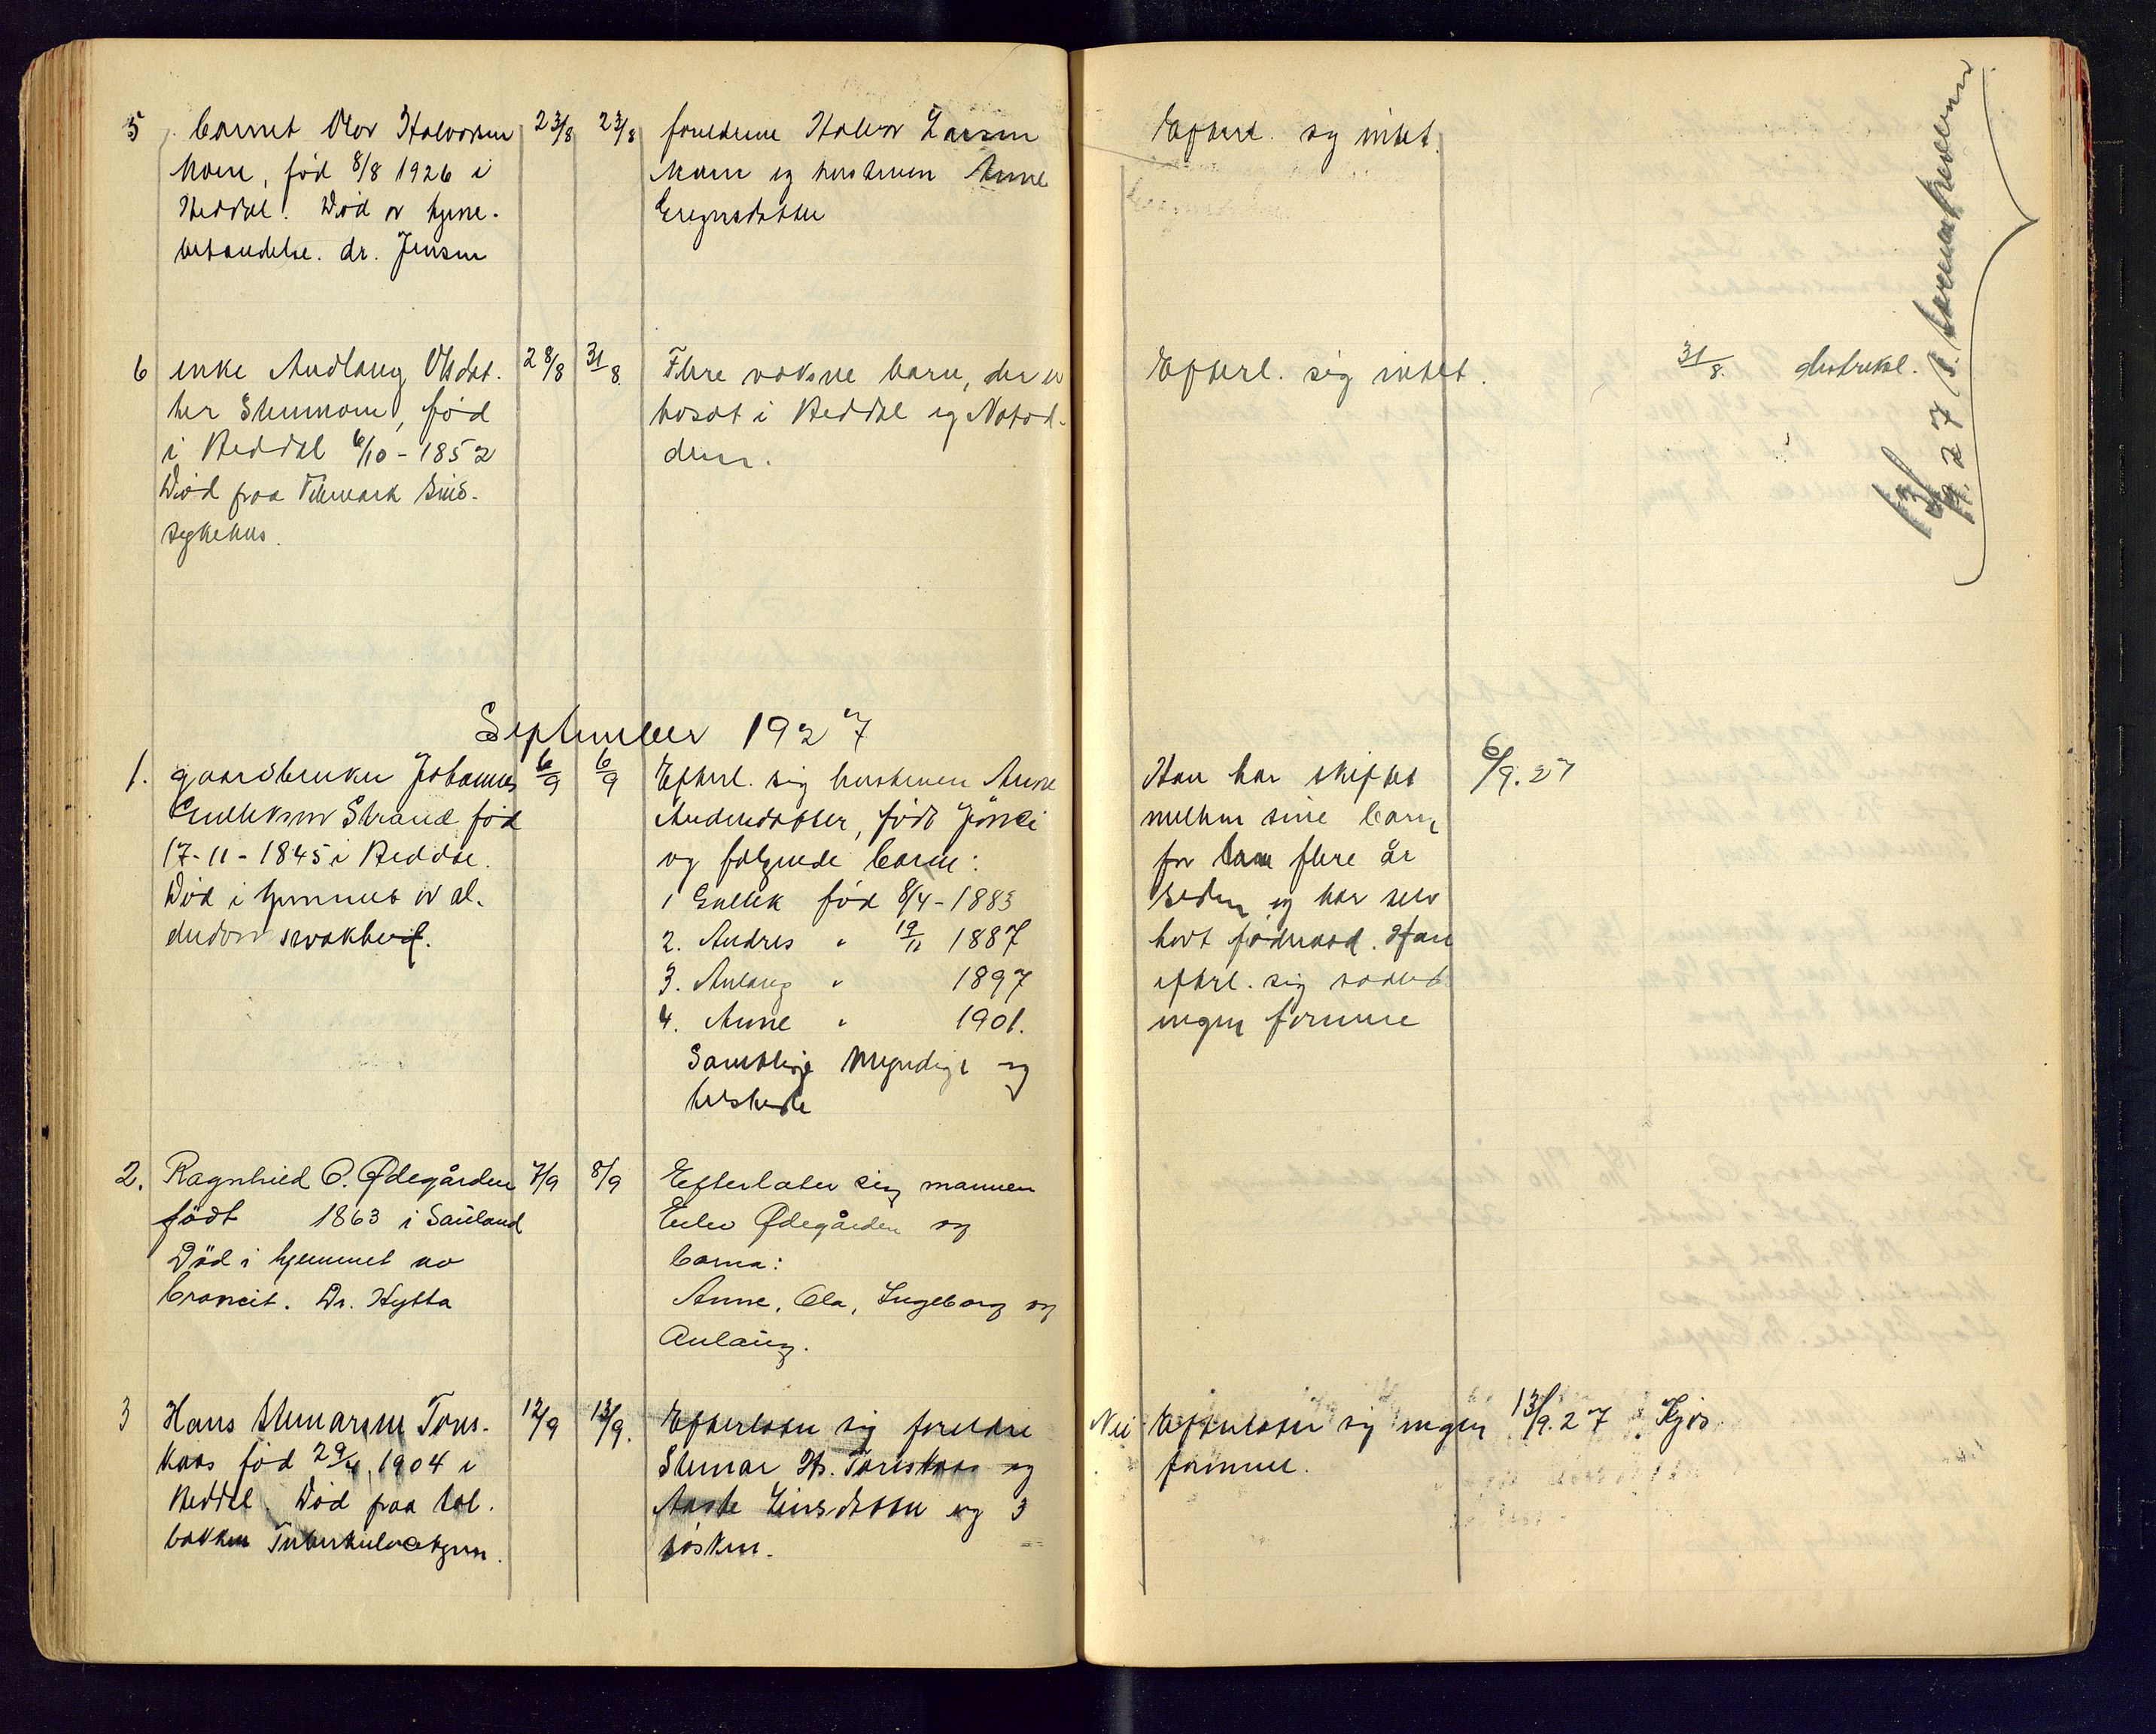 5 barnet Olav Halvorsen 23/8 23/8 foreldrene Halvor Larsen Efterl. sig intet.
Moen, født 8/8 1926 i Moen og hustruen Anne
Heddal. Død av hjerne-
betændelse. dr. Jensen
6 enke Andlaug Olsdat- 28/8 31/8 Flere voksne barn, der er Efterl. sig intet. 31/8.
ter Stenmoen, fød bosat i Heddal og Notod-
i Heddal 6/10 - 1852 den.
Død paa Telemark
sykehus.
13/9.27
September 1927
1. gaardbruker Johannes 6/9 6/9 Efterl. sig hustruen Anne Han har skiftet 6/9.27
Gulliksen Strand fød født mellem sine barn
17-11-1845 i Heddal. og følgende barn: for flere år
Død i hjemmet av al- 1 Gullik fød 8/4-1883 siden og har selv
derdoms svakhet. 2. Andres " 19/11 1887 hat føderaad. Han
3. Aulaug " 1897 efterl. sig
4. Anne " 1901. ingen formue
Samtlige myndige og
2. Ragnhild O. Ødegården 7/9 8/9 Efterlater sig mannen
født 1863 i Sauland Ødegården og
Død i hjemmet av barna:
Dr. Hytta Anne, Ola, Ingeborg og
Aulaug.
3 Hans Steinarsen Tors- 12/9 13/9. Efterlater sig foreldre Nei Efterlater sig ingen 13/9.27 Gjøs
kaas fød 29/4 1904 i Steinar Hs. Torskaas og formue.
Heddal. Død paa Sol- Aaste og 3
bakken Tuberkulosehjem. søsken.